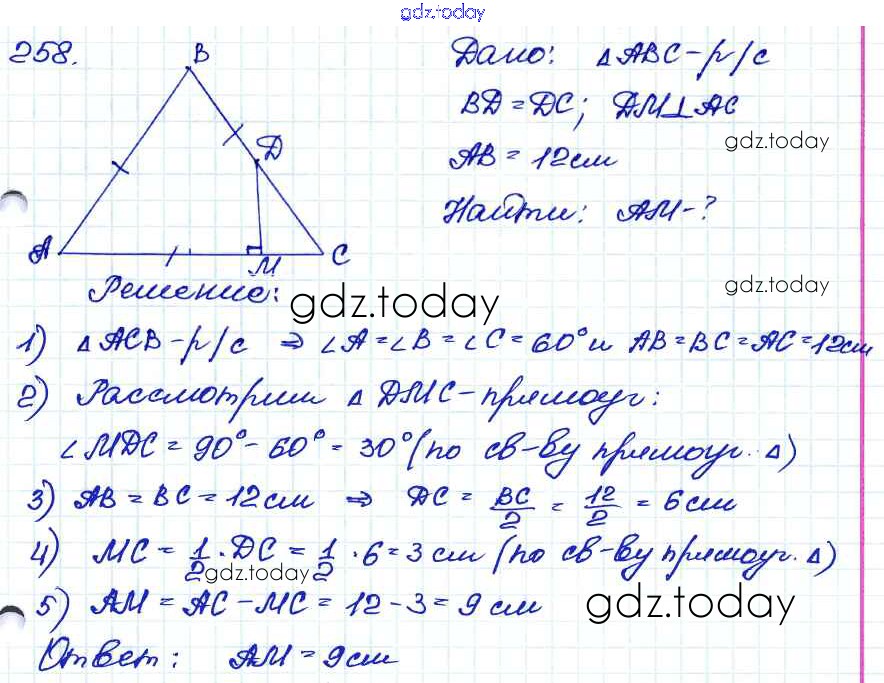 gdz.today
258.
B
Дано: △ABC - р/с
BD = DC; DM⊥AC
gdz.today
D
AB = 12см
Найти: AM - ?
A
M
C
Решение:
gdz.today
gdz.today
1) △ACB - р/с ⇒ ∠A = ∠B = ∠C = 60° и AB = BC = AC = 12см
2) Рассмотрим △DMC - прямоуг:
∠MDC = 90° - 60° = 30° (по св-ву прямоуг. △)
3) AB = BC = 12см ⇒ DC = BC/2 = 12/2 = 6см
4) MC = 1/2 · DC = 1/2 · 6 = 3 см (по св-ву прямоуг. △)
gdz.today
5) AM = AC - MC = 12 - 3 = 9 см
gdz.today
Ответ: AM = 9см